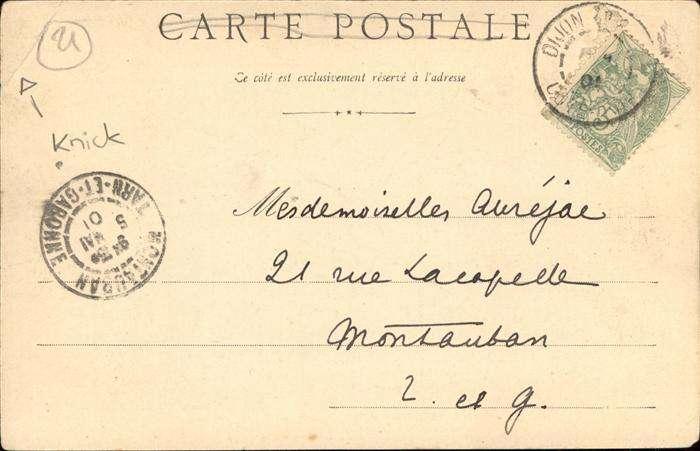 u
CARTE POSTALE
Ce côté est exclusivement réservé à l'adresse
DIJON
POSTES
Knick
MONTAUBAN
TARN-ET-GARONNE
5
MAI
01
Mesdemoiselles Auréjac
21 rue Lacapelle
Montauban
T. et G.